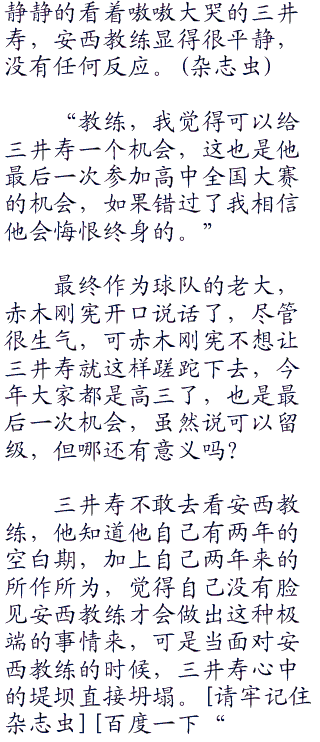 静静的看着嗷嗷大哭的三井
寿，安西教练显得很平静，
没有任何反应。(杂志虫)
“教练，我觉得可以给
三井寿一个机会，这也是他
最后一次参加高中全国大赛
的机会，如果错过了我相信
他会悔恨终身的。”
最终作为球队的老大，
赤木刚宪开口说话了，尽管
很生气，可赤木刚宪不想让
三井寿就这样蹉跎下去，今
年大家都是高三了，也是最
后一次机会，虽然说可以留
级，但哪还有意义吗？
三井寿不敢去看安西教
练，他知道他自己有两年的
空白期，加上自己两年来的
所作所为，觉得自己没有脸
见安西教练才会做出这种极
端的事情来，可是当面对安
西教练的时候，三井寿心中
的堤坝直接坍塌。[请牢记住
杂志虫][百度一下“